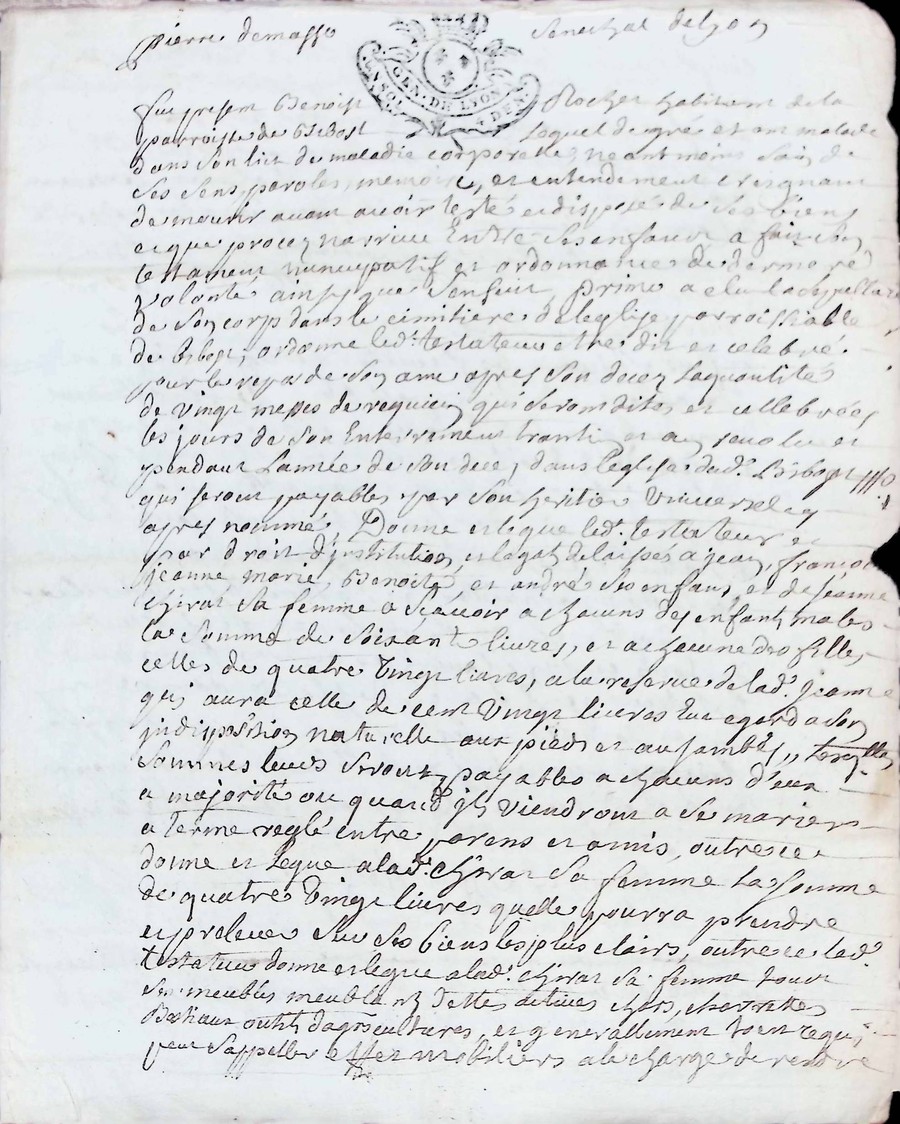 pierre demasso Senechal de Lyon
GEN. DE LYON
fut present Benoist Rocher habitant de la
parroisse de Bibost Lequel de gré et ant malade
dans son lict de maladie corporelle, neantmoins sain de
ses sens, paroles, memoire, et entendement creignant
de mourir avant avoir testé et disposé de ses biens
et que procez narrive Entre ses enfant a fait son
testament nuncupatif et ordonnance de derniere
volonté ainsy que senseuit, primo a elu la sepulture
de son corps dans le cimitiere de leglise parroissialle
de Bibost, ordonne led. testateur etre dit et celebré
pour le repos de son ame apres son decez la quantité
de vingt messes de requiem qui seront dites et cellebrées
les jours de son Enterrement trantin et an revolu et
pendant Lannée de son dece, dans leglise dud. Bibost
qui seront payables par son heritier Universel cy
apres nommé, Donne et legue led. testateur et
par droit d'institution, et legat delaisse a jean, francois
jeanne, marie, Benoite, et andré ses enfans, et de jeanne
Chirat sa femme a sçavoir a chacuns des enfant males
la somme de soixante livres, et a chacune des filles
celles de quatre vingt livres, a la reserve de lad. jeanne
qui aura celle de cent vingt livres Eut egard a son
indisposition naturelle aux pieds et au jambes,
sommes leurs seront payables a chacuns d'eux
a majorité ou quand ils viendront a se marier
a terme reglé entre parens et amis, outre ce
donne et legue a lad. Chirat sa femme la somme
de quatre vingt livres quelle pourra prendre
et prelever sur ses biens les plus clairs, outre ce led.
testateur donne et legue a lad. Chirat sa femme tout
ses meubles meublant dettes actives chars, charrettes
Bestiaux outils dagricultures, et generallement tout ce qui
peut sappeller effet mobiliers a la charge de rendre